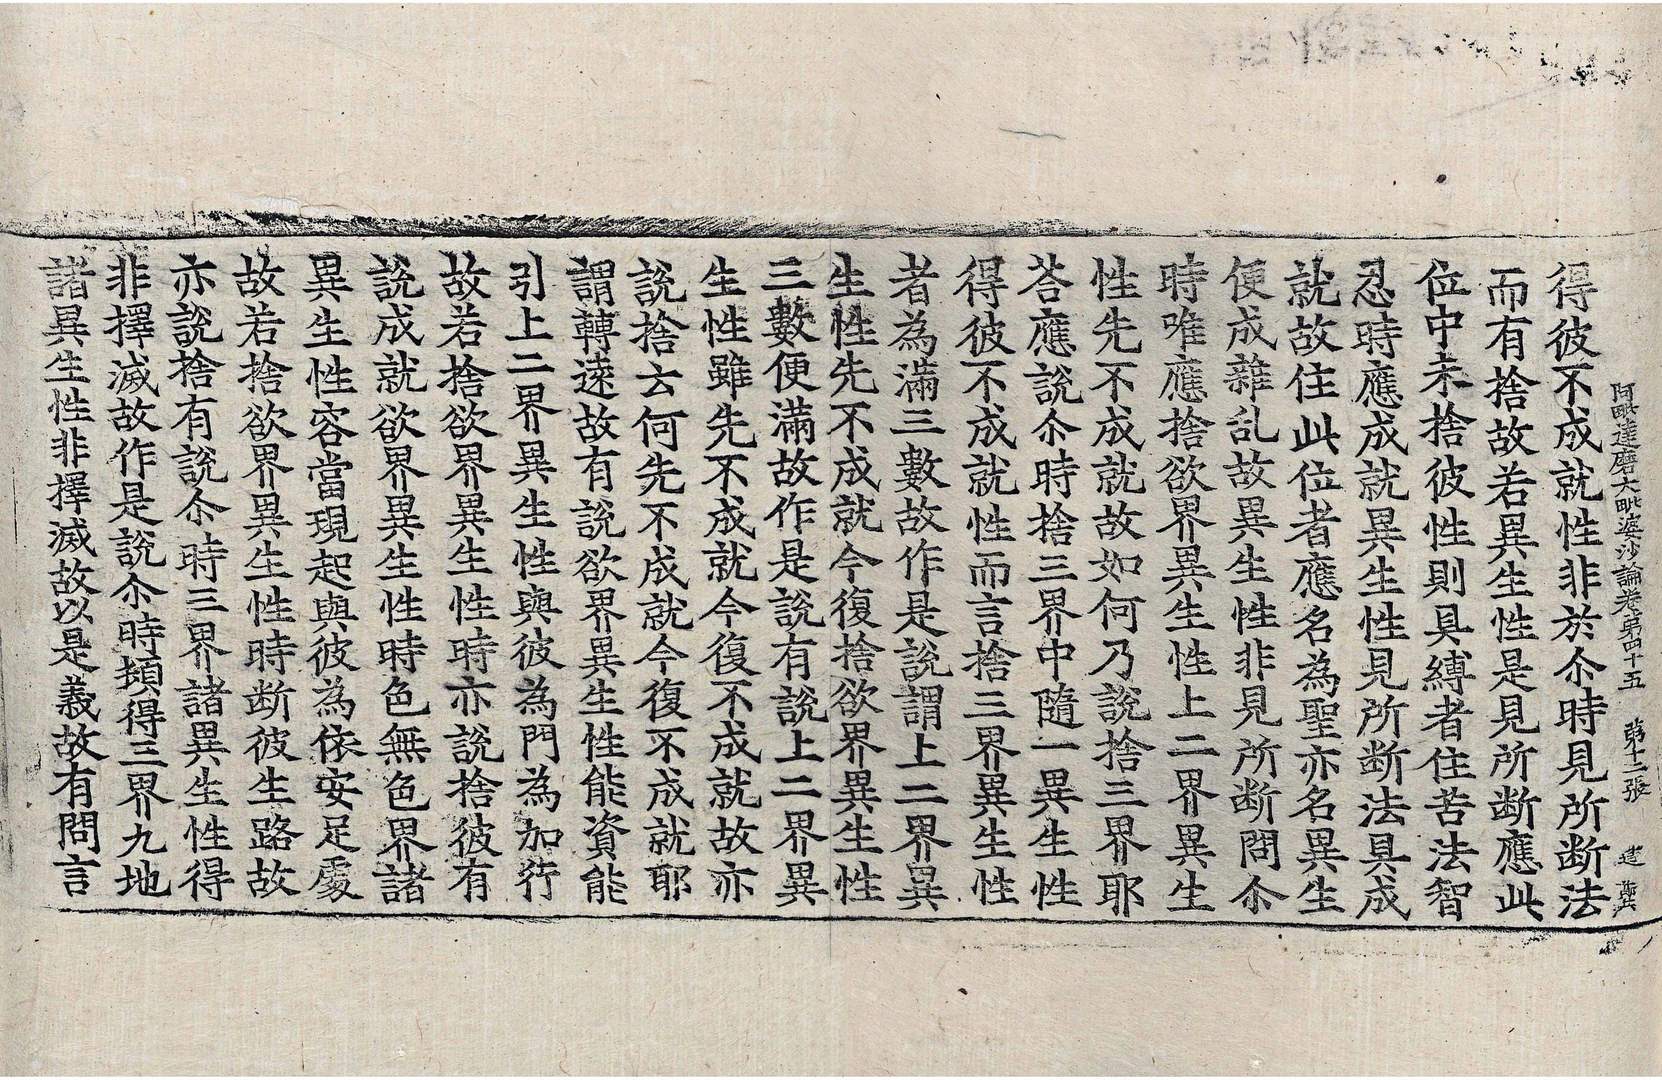 阿毗達磨大毗婆沙論卷第四十五 第十二張 建
得彼不成就性非於尒時見所断法
而有捨故若異生性是見所断應此
位中未捨彼性則具縛者住苦法智
忍時應成就異生性見所断法具成
就故住此位者應名為聖亦名異生
便成雜乱故異生性非見所断問尒
時唯應捨欲界異生性上二界異生
性先不成就故如何乃說捨三界耶
荅應說尒時捨三界中隨一異生性
得彼不成就性而言捨三界異生性
者為滿三數故作是說謂上二界異
生性先不成就今復捨欲界異生性
三數便滿故作是說有說上二界異
生性雖先不成就今復不成就故亦
說捨云何先不成就今復不成就耶
謂轉遠故有說欲界異生性能資能
引上二界異生性與彼為門為加行
故若捨欲界異生性時亦說捨彼有
說成就欲界異生性時色無色界諸
異生性容當現起與彼為依安足處
故若捨欲界異生性時断彼生路故
亦說捨有說尒時三界諸異生性得
非擇滅故作是說尒時揔得三界九地
諸異生性非擇滅故以是義故有問言